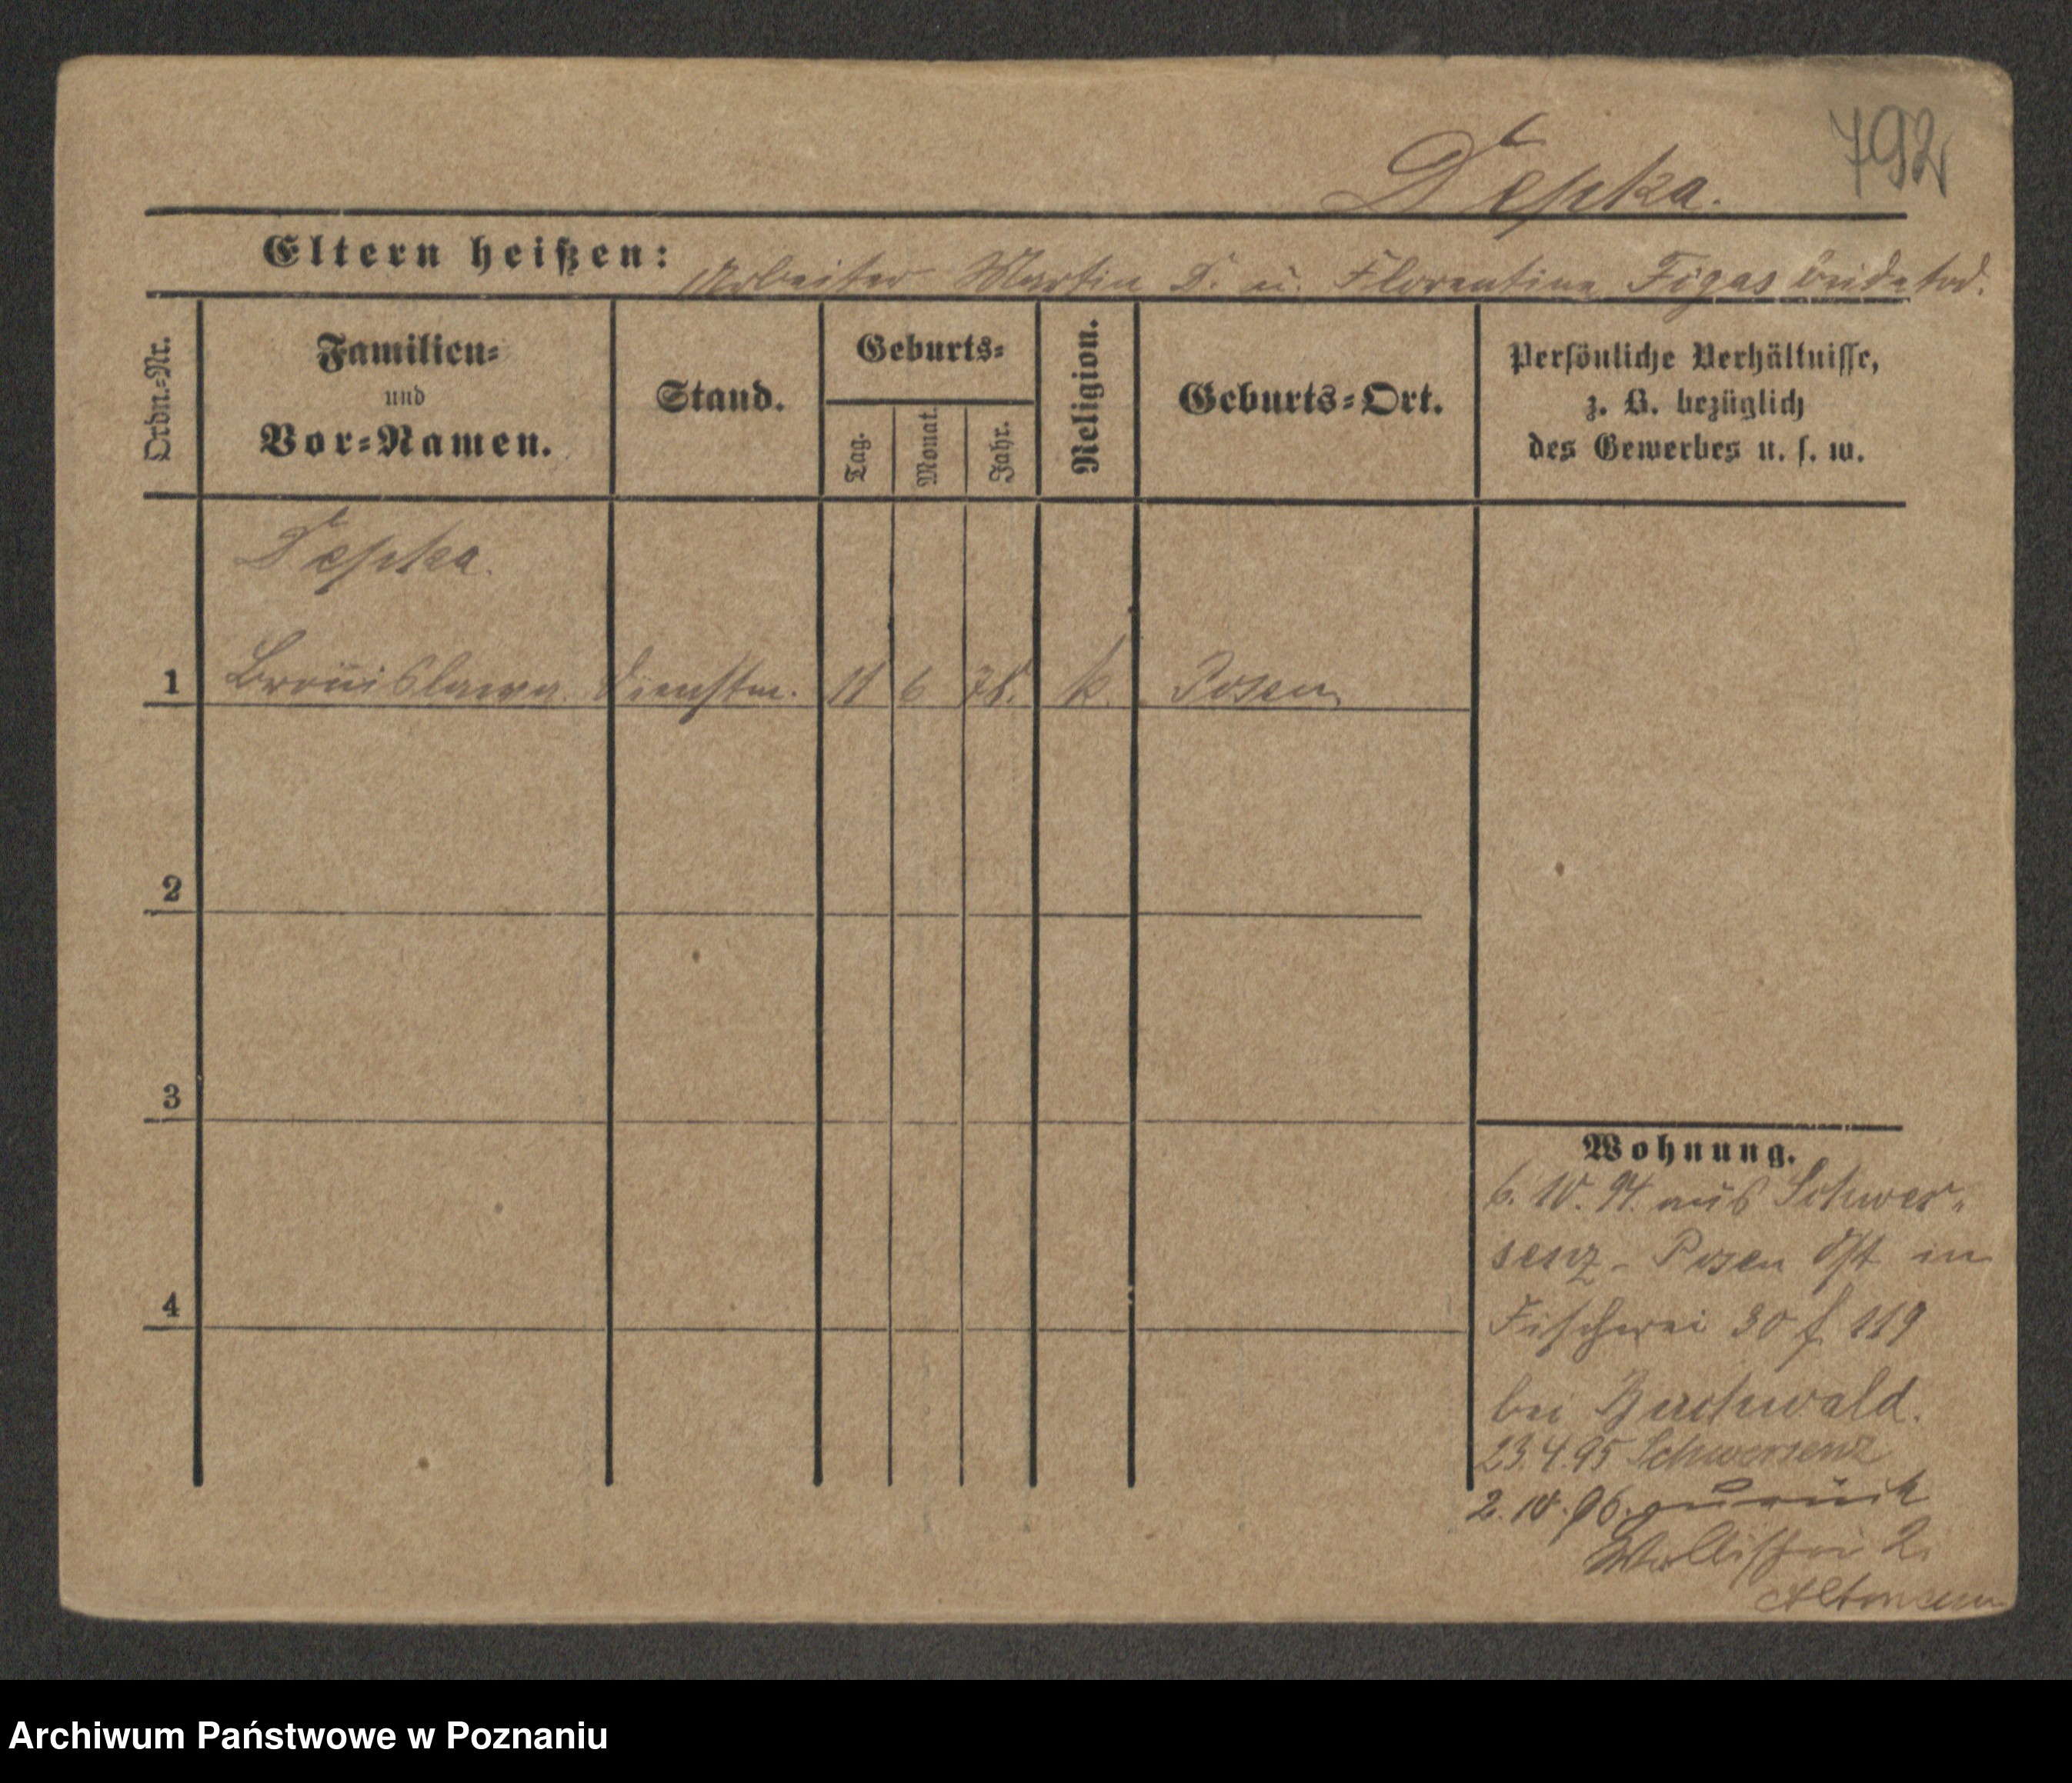 792
Depka.
Eltern heißen: Arbeiter Martin D. u. Florentine Figas beide tod.
Ordn.=Nr.
Familien=
und
Vor=Namen.
Stand.
Geburts=
Tag.
Monat.
Jahr.
Religion.
Geburts=Ort.
Persönliche Verhältnisse,
z. B. bezüglich
des Gewerbes u. s. w.
Depka.
1 Bronislawa. Dienstm. 11 6 78. k. Posen
2
3
4
Wohnung.
6. 10. 94. aus Schwer-
senz - Posen Ost in
Fischerei 30 f. 119
bei Buchwald.
23.4.95 Schwersenz
2.10.96. zurück
Wallischei 2.